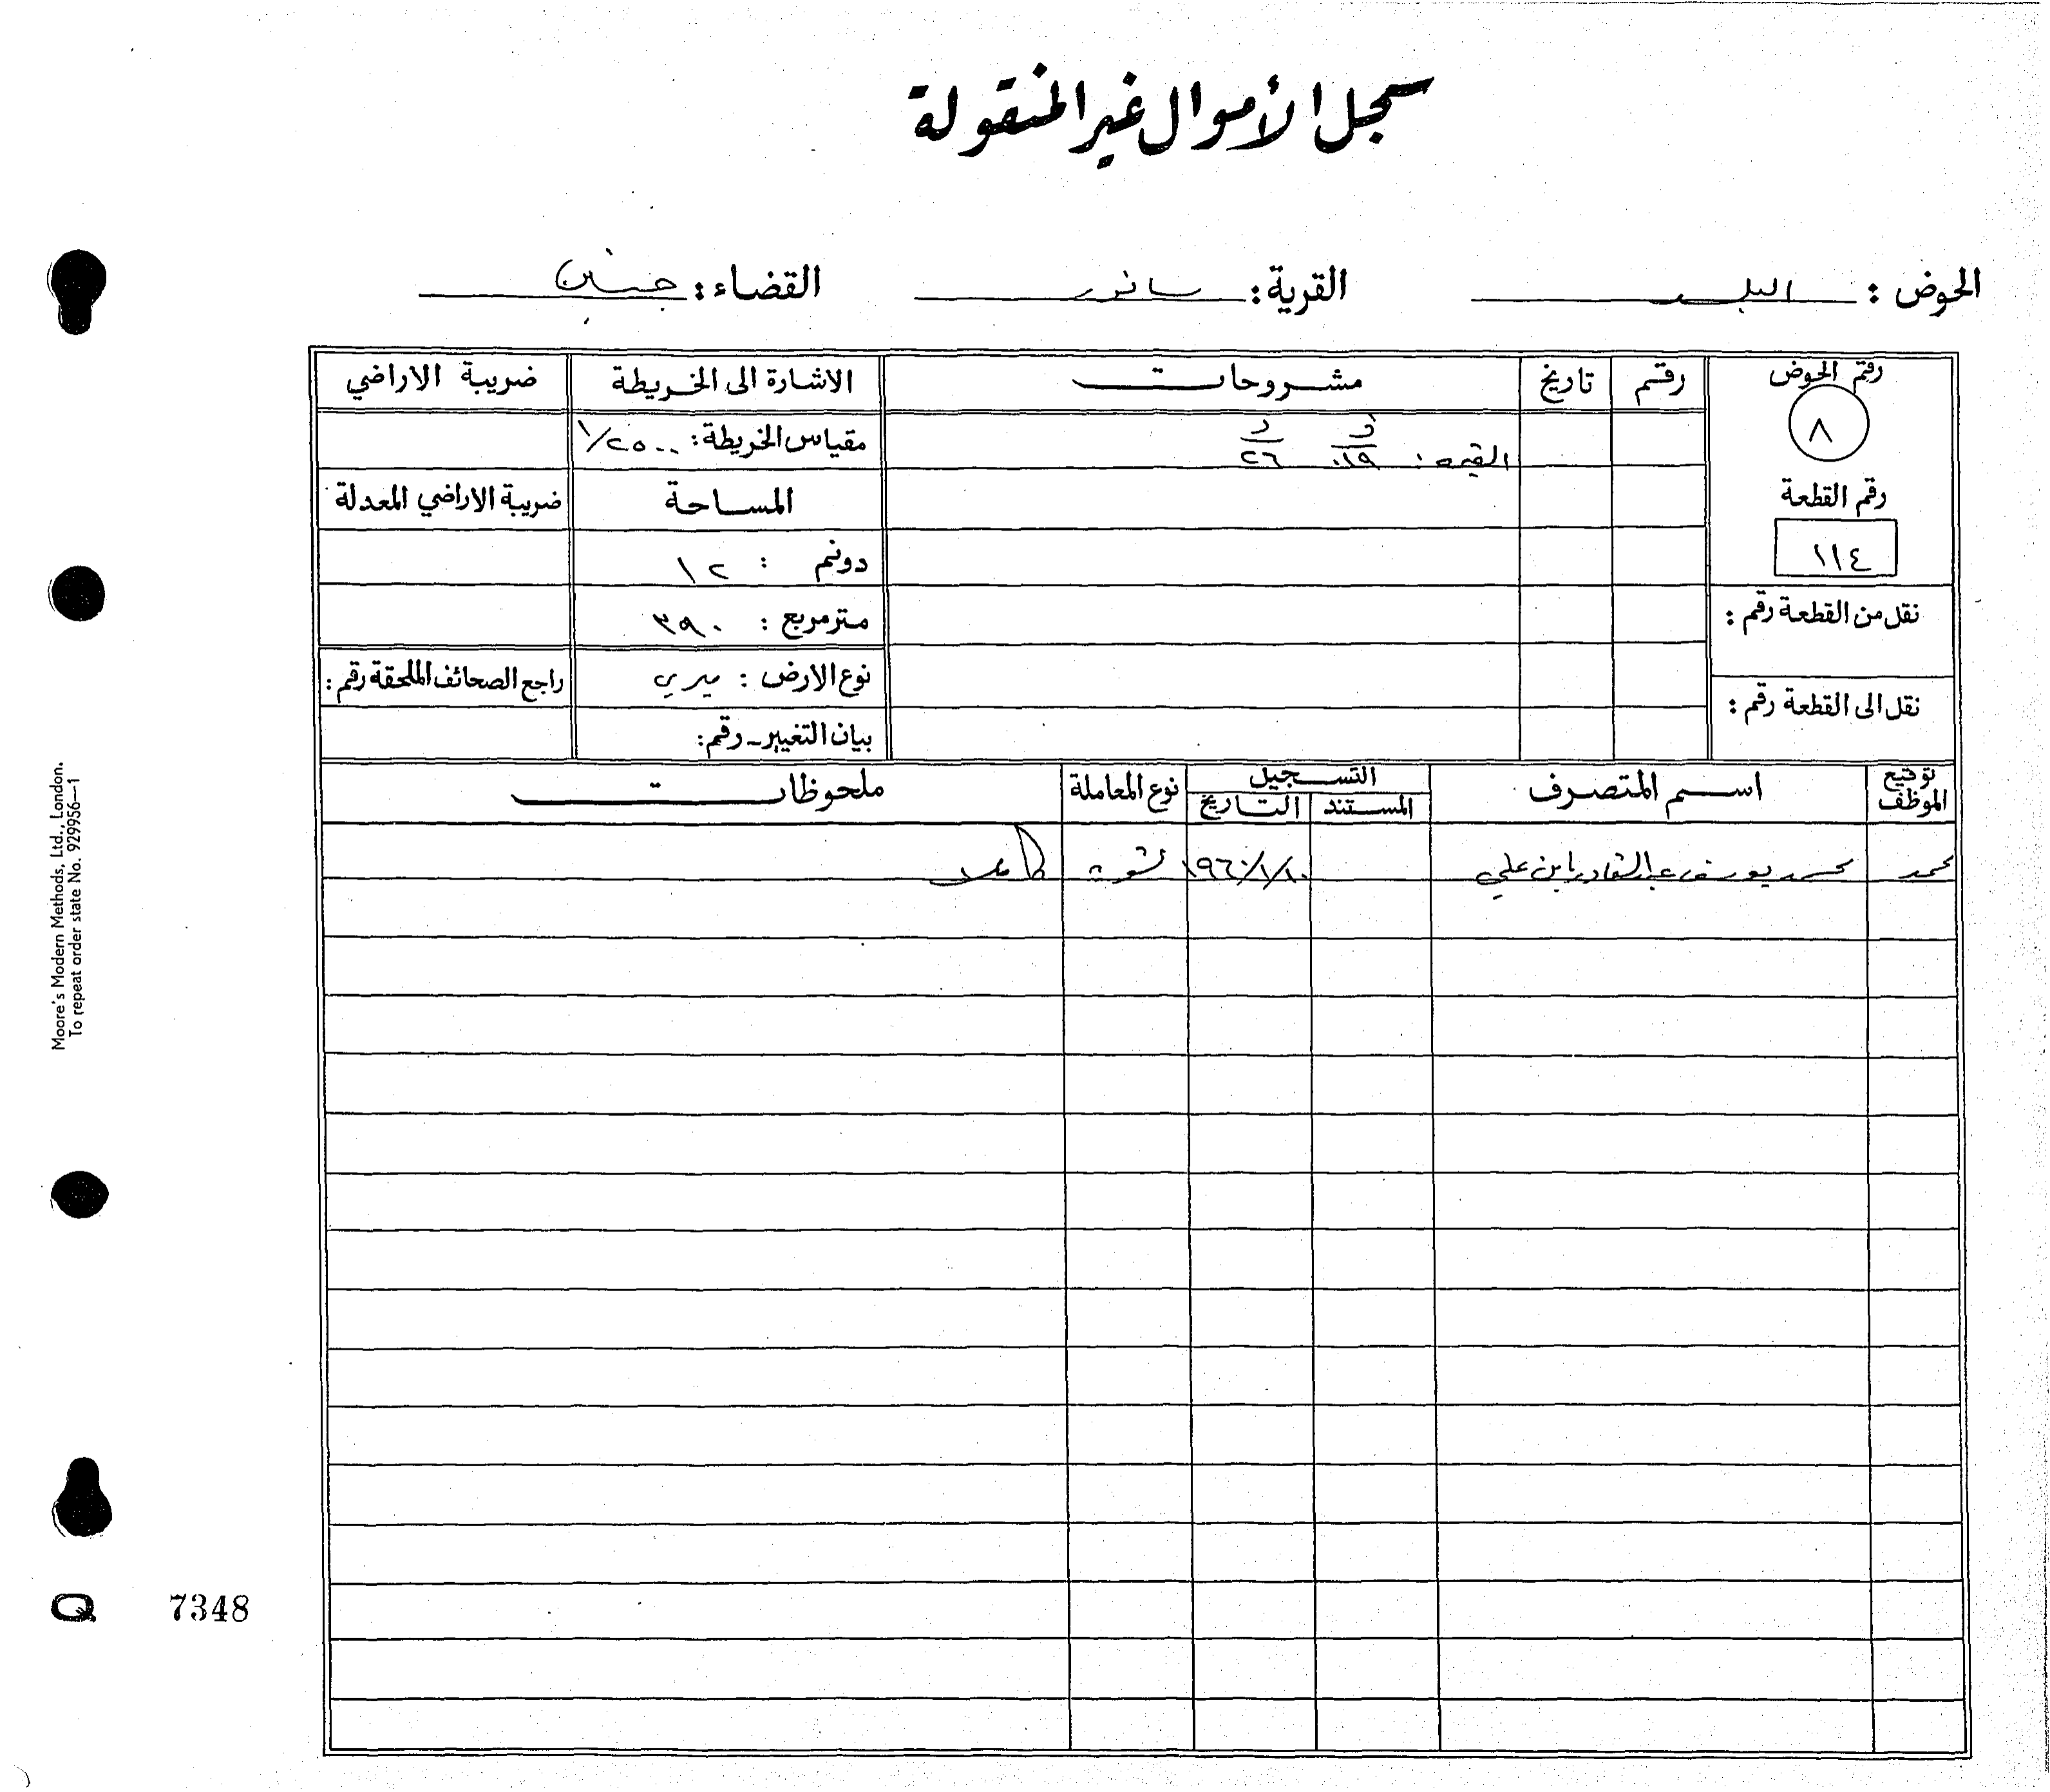 سجل الأموال غير المنقولة
الحوض : البلد القرية : سانور القضاء : جنين
رقم الحوض رقم تاريخ مشروحات الاشارة الى الخريطة ضريبة الاراضي
٨ القيمه : ١٩ ٢٦ مقياس الخريطة : ١/٢٥٠٠
رقم القطعة المساحة ضريبة الاراضي المعدلة
١١٤ دونم : ١٢
نقل من القطعة رقم : متر مربع : ٣٩٠
نوع الارض : ميري راجع الصحائف الملحقة رقم :
نقل الى القطعة رقم : بيان التغيير - رقم :
توقيع الموظف اسم المتصرف التسجيل نوع المعاملة ملحوظات
المستند التاريخ
محمد محمد يوسف عبد القادر ابن علي ١٩٦٠/١/١٠ تسوية كاملا
Moore's Modern Methods, Ltd., London.
To repeat order state No. 929956—1
Q 7348